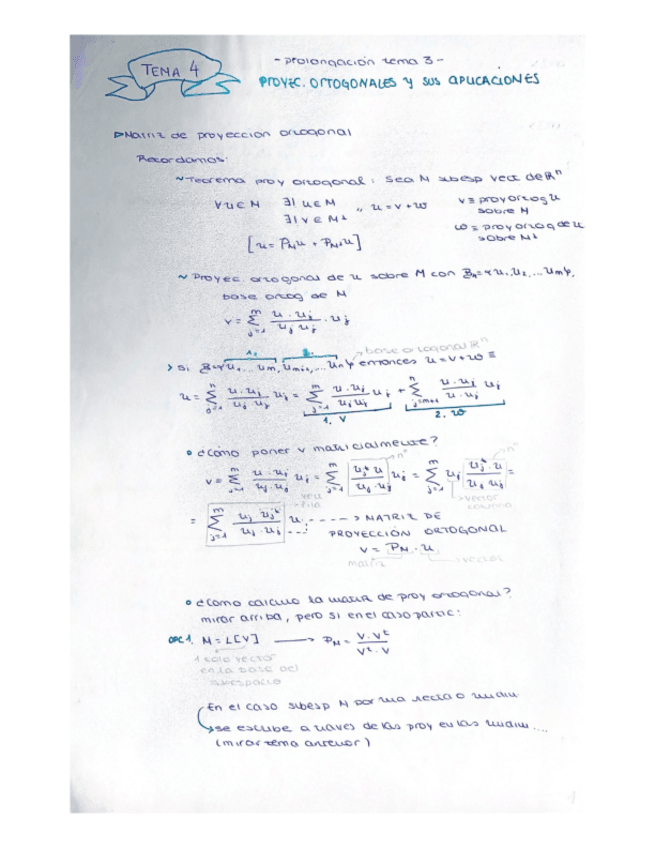 TEMA 4
- prolongación tema 3 -
PROYEC. ORTOGONALES Y SUS APLICACIONES
▷Matriz de proyeccion ortogonal
Recordamos:
~Teorema proy ortogonal: Sea M subesp vect de ℝⁿ
∀u∈M ∃! u∈M ,, u=v+w v≡proy ortog u sobre M
∃! v∈M⊥ w≡proy ortog de u sobre M⊥
[u= P_M u + P_M⊥ u]
~ Proyec. ortogonal de u sobre M con B_M={u₁, u₂, ... u_m},
base ortog de M
v= Σ_{j=1}^{m} (u·u_j)/(u_j u_j) · u_j
1. 2. base ortogonal ℝⁿ
> Si B={u₁... u_m, u_{m+1}, ... u_n} entonces u=v+w ≡
u= Σ_{j=1}^{n} (u·u_j)/(u_j·u_j) u_j = Σ_{j=1}^{m} (u·u_j)/(u_j u_j) u_j + Σ_{j=m+1}^{n} (u·u_j)/(u·u_j) u_j
1. v 2. w
• ¿Cómo poner v matricialmente?
v= Σ_{j=1}^{m} (u·u_j)/(u_j·u_j) u_j = Σ_{j=1}^{m} (u_jᵗ u)/(u_j·u_j) u_j = Σ_{j=1}^{m} u_j (u_jᵗ·u)/(u_j u_j) =
vect fila vector columna
= Σ_{j=1}^{m} (u_j u_jᵗ)/(u_j·u_j) u -----> MATRIZ DE
PROYECCIÓN ORTOGONAL
v= P_M · u
matriz vector
• ¿Cómo calculo la matriz de proy ortogonal?
mirar arriba, pero si en el caso partic:
OPC 1. M=L[V] ⟶ P_M = (V·Vᵗ)/(Vᵗ·V)
1 solo vector
en la base del
subespacio
En el caso subesp M por una recta o
se escribe a traves de las proy en las ....
(mirar tema anterior)
1